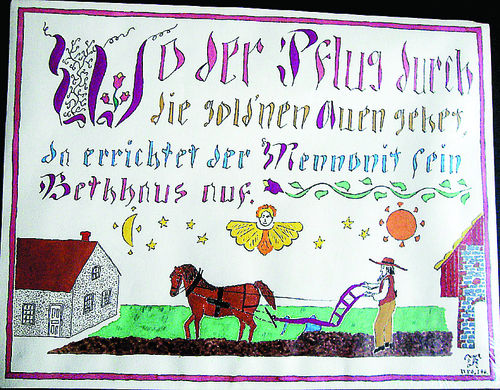 Wo der Pflug durch
die gold'nen Auen gehet,
da errichtet der Mennonit sein
Bethhaus auf.